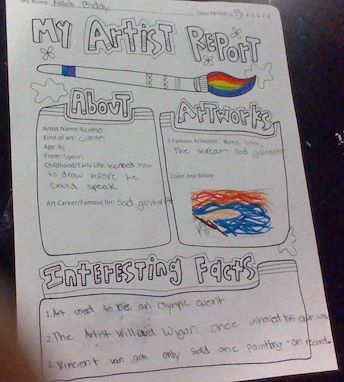 My Name: Kaleb Biddy Class Period: 1 2 3 4 5 6 7 8
My Artist Report
About
Artist Name: Picasso
Kind of art: cubism
Age: 91
From: Spain
Childhood/Early Life: learned how
to draw before he
could speak
Art Career/Famous for: Sad guitarist
Artworks
3 Famous Artworks:
The scream Sad guitarist
Color one below
Interesting Facts
1. Art used to be an Olympic event
2. The Artist Willard Wigan once inhaled his own work
3. Vincent van goh only sold one painting - on record